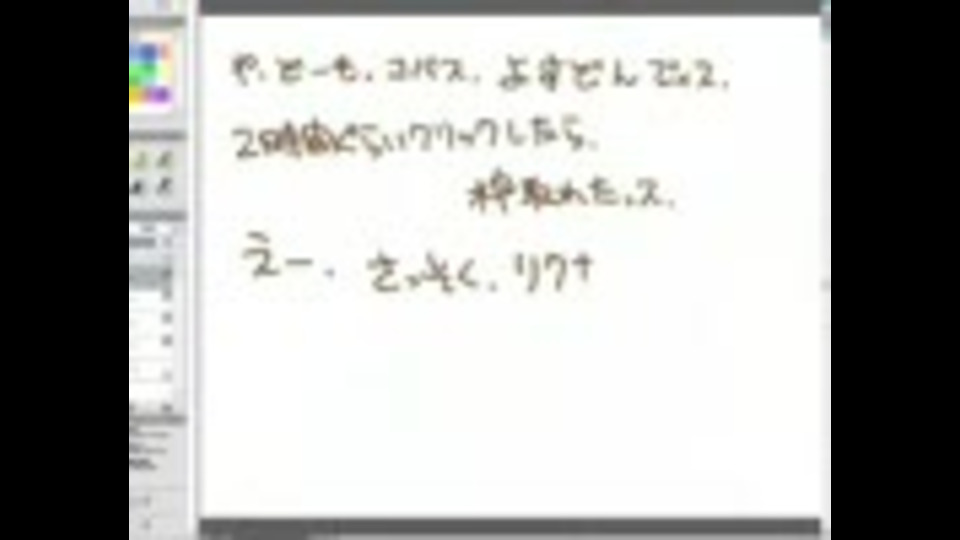 や、どーも、コバス、よすどんでっス.
2時間ぐらいクリックしたら、
枠取れたっス.
えー、さっそく、リク